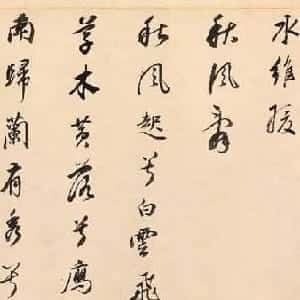 水維緩
秋風辭
秋風起兮白雲飛
草木黄落兮鴈
南歸蘭有秀兮